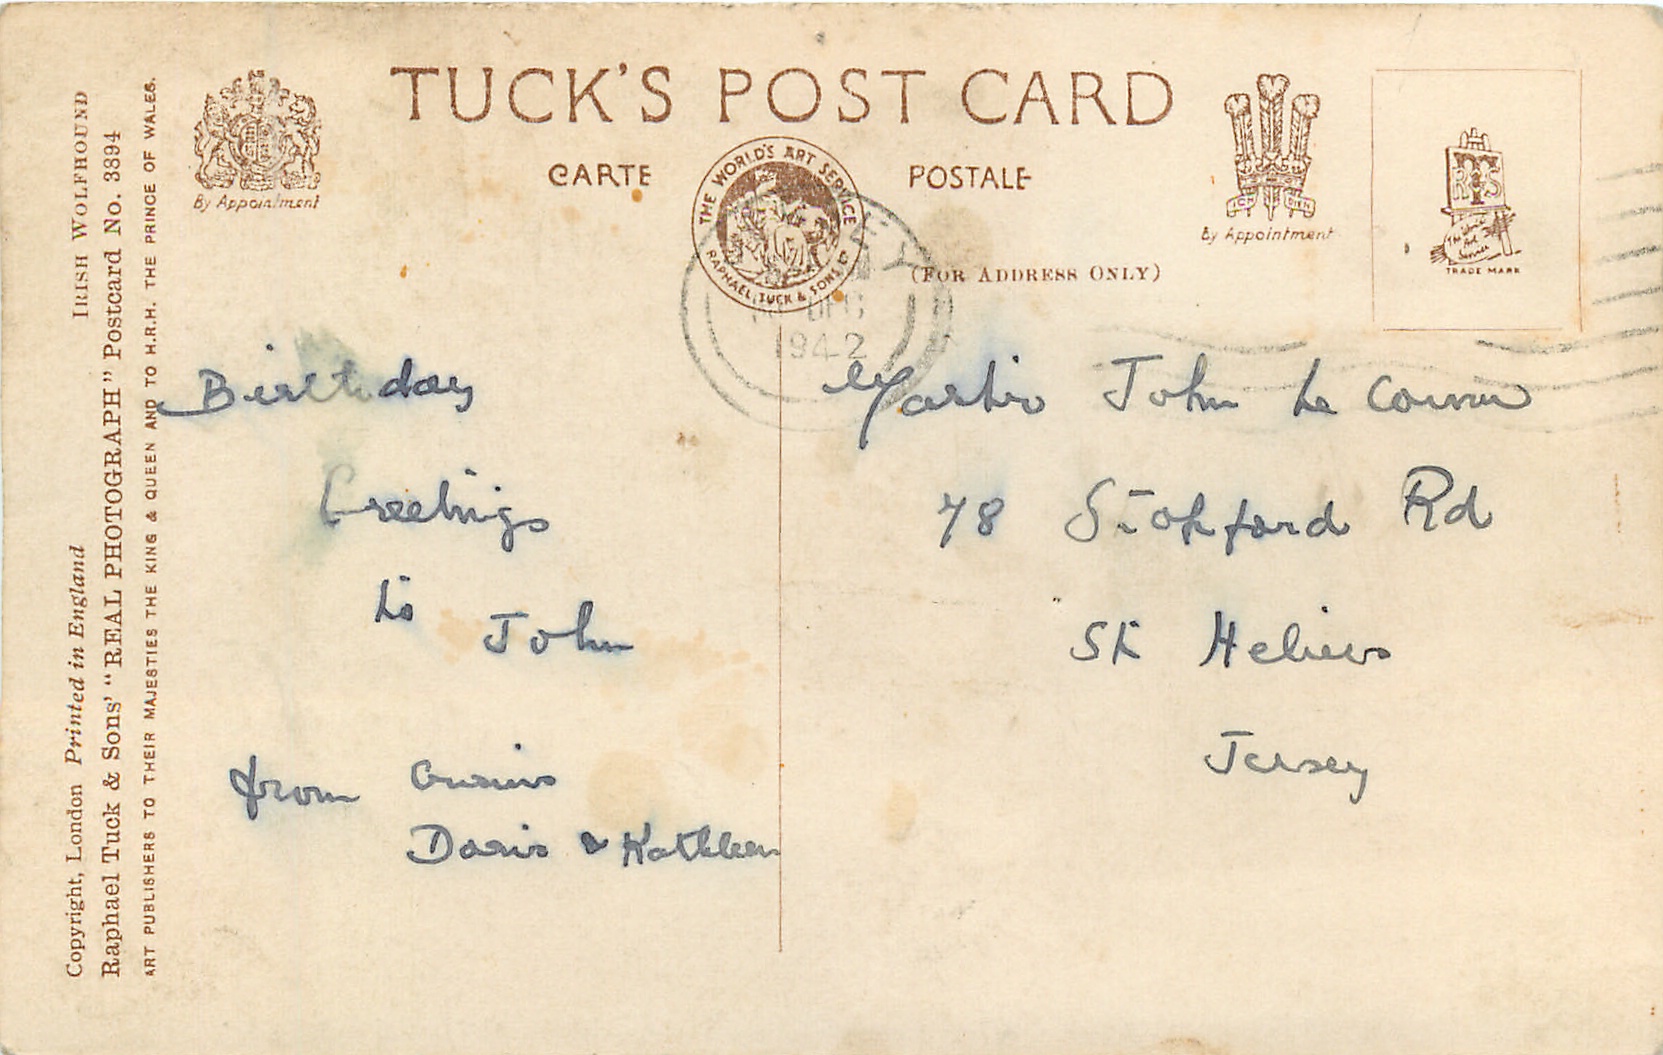 TUCK'S POST CARD
CARTE POSTALE
By Appointment
THE WORLD'S ART SERVICE
RAPHAEL TUCK & SONS LTD
ICH DIEN
By Appointment
The World's Art Service
TRADE MARK
(FOR ADDRESS ONLY)
DEC
1942
IRISH WOLFHOUND
Copyright, London Printed in England
Raphael Tuck & Sons' "REAL PHOTOGRAPH" Postcard No. 3894
ART PUBLISHERS TO THEIR MAJESTIES THE KING & QUEEN AND TO H.R.H. THE PRINCE OF WALES.
Birthday
Greetings
to
John
from Cousins
Doris & Kathleen
John Le
78 Stopford Rd
St Heliers
Jersey